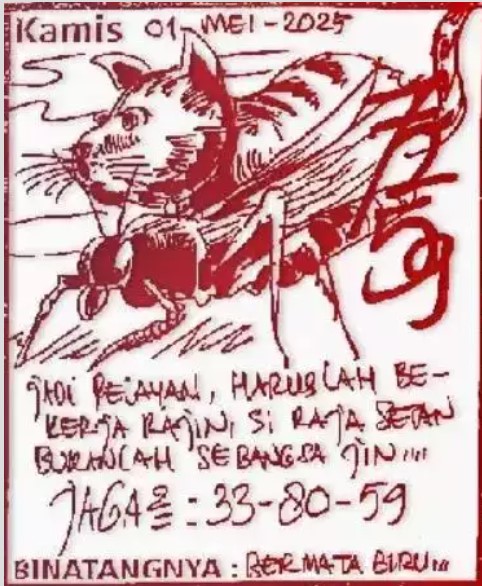 Kamis 01-MEI-2025
JADI PELAYAN, HARUSLAH BE-
KERJA RAJIN, SI RAJA SETAN
BUKANLAH SEBANGSA JIN...
JAGA2 = 33-80-59
BINATANGNYA : BERMATA BIRU...